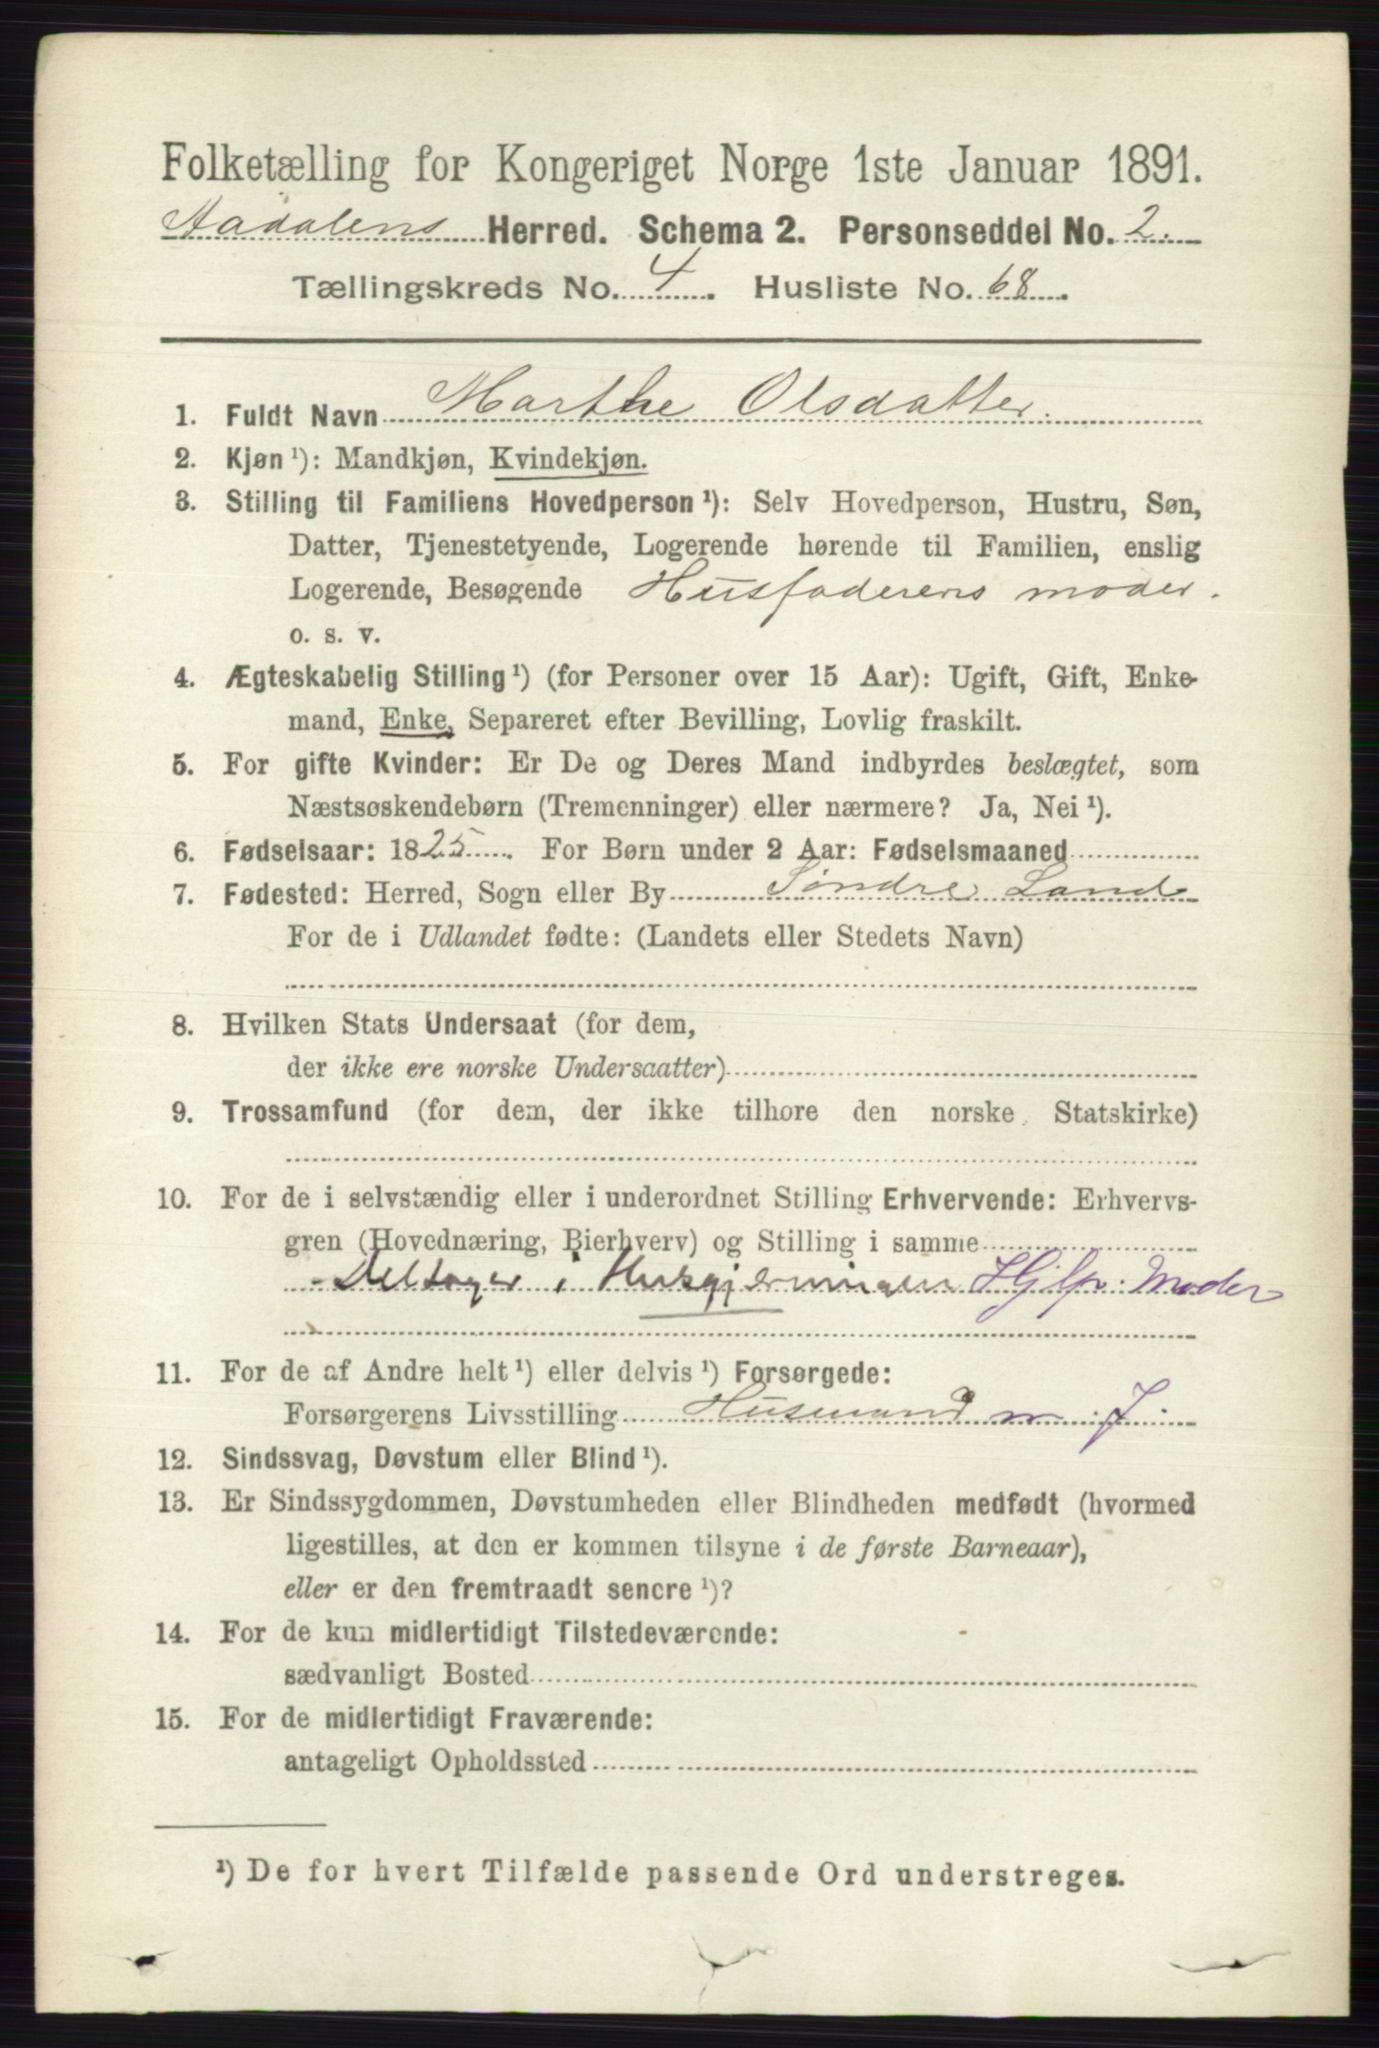 Folketælling for Kongeriget Norge 1ste Januar 1891.
Aadalens Herred. Schema 2. Personseddel No. 2.
Tællingskreds No. 4. Husliste No. 68.
1. Fuldt Navn Marthe Olsdatter.
2. Kjøn ¹): Mandkjøn, Kvindekjøn.
3. Stilling til Familiens Hovedperson ¹): Selv Hovedperson, Hustru, Søn,
Datter, Tjenestetyende, Logerende hørende til Familien, enslig
Logerende, Besøgende Husfaderens moder.
o. s. v.
4. Ægteskabelig Stilling ¹) (for Personer over 15 Aar): Ugift, Gift, Enke-
mand, Enke, Separeret efter Bevilling, Lovlig fraskilt.
5. For gifte Kvinder: Er De og Deres Mand indbyrdes beslægtet, som
Næstsøskendebørn (Tremenninger) eller nærmere? Ja, Nei ¹).
6. Fødselsaar: 1825. For Børn under 2 Aar: Fødselsmaaned
7. Fødested: Herred, Sogn eller By Søndre Land
For de i Udlandet fødte: (Landets eller Stedets Navn)
8. Hvilken Stats Undersaat (for dem,
der ikke ere norske Undersaatter)
9. Trossamfund (for dem, der ikke tilhore den norske Statskirke)
10. For de i selvstændig eller i underordnet Stilling Erhvervende: Erhvervs-
gren (Hovednæring, Bierhverv) og Stilling i samme
Deltager i Husgjerningen Hjlp. Moder
11. For de af Andre helt ¹) eller delvis ¹) Forsørgede:
Forsørgerens Livsstilling Husmand m. J.
12. Sindssvag, Døvstum eller Blind ¹).
13. Er Sindssygdommen, Døvstumheden eller Blindheden medfødt (hvormed
ligestilles, at den er kommen tilsyne i de første Barneaar),
eller er den fremtraadt senere ¹)?
14. For de kun midlertidigt Tilstedeværende:
sædvanligt Bosted
15. For de midlertidigt Fraværende:
antageligt Opholdssted
¹) De for hvert Tilfælde passende Ord understreges.